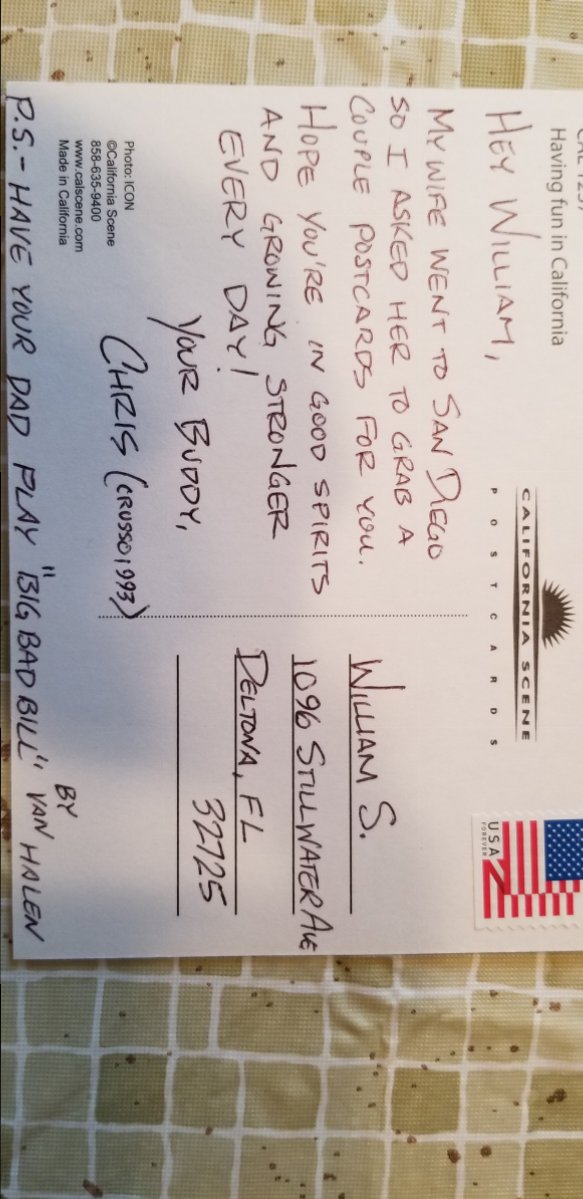 Having fun in California
CALIFORNIA SCENE
POSTCARDS
USA
FOREVER
HEY WILLIAM,
MY WIFE WENT TO SAN DIEGO
SO I ASKED HER TO GRAB A
COUPLE POSTCARDS FOR YOU.
HOPE YOU'RE IN GOOD SPIRITS
AND GROWING STRONGER
EVERY DAY!
YOUR BUDDY,
CHRIS (CRUSSO1993)
WILLIAM S.
1096 STILLWATER AVE
DELTONA, FL
32725
Photo: ICON
©California Scene
858-635-9400
www.calscene.com
Made in California
P.S.- HAVE YOUR DAD PLAY "BIG BAD BILL" BY VAN HALEN